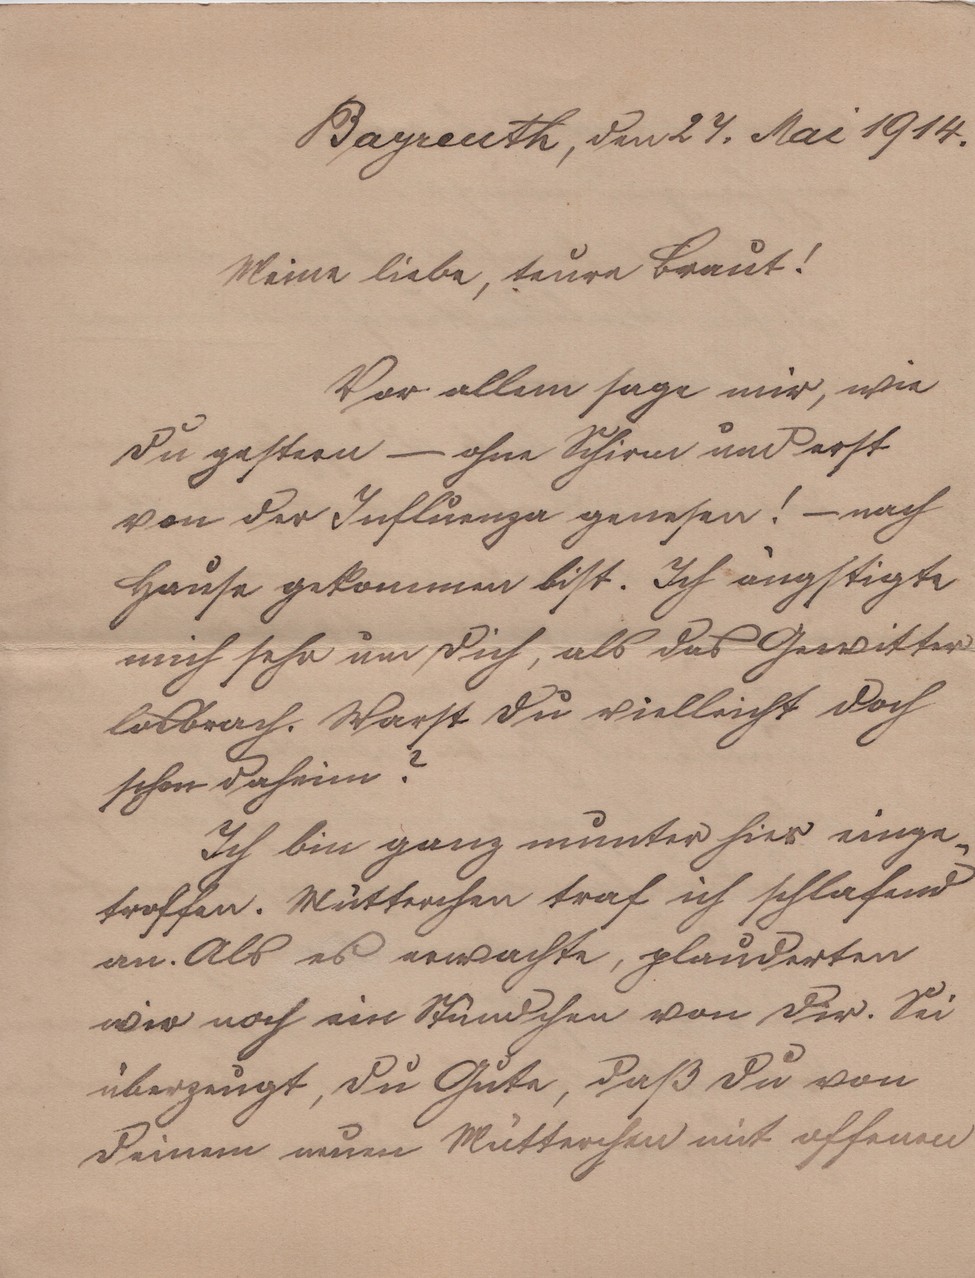 Bayreuth, den 27. Mai 1914.
Meine liebe, teure Braut!
Vor allem sage mir, wie
Du gestern — ohne Schirm und erst
von der Influenza genesen! — nach
Hause gekommen bist. Ich ängstigte
mich sehr um Dich, als das Gewitter
losbrach. Warst Du vielleicht doch
schon daheim?
Ich bin ganz munter hier einge-
troffen. Mütterchen traf ich schlafend
an. Als es erwachte, plauderten
wir noch ein Stündchen von Dir. Sei
überzeugt, Du Gute, daß Du von
Deinem neuen Mütterchen mit offenen